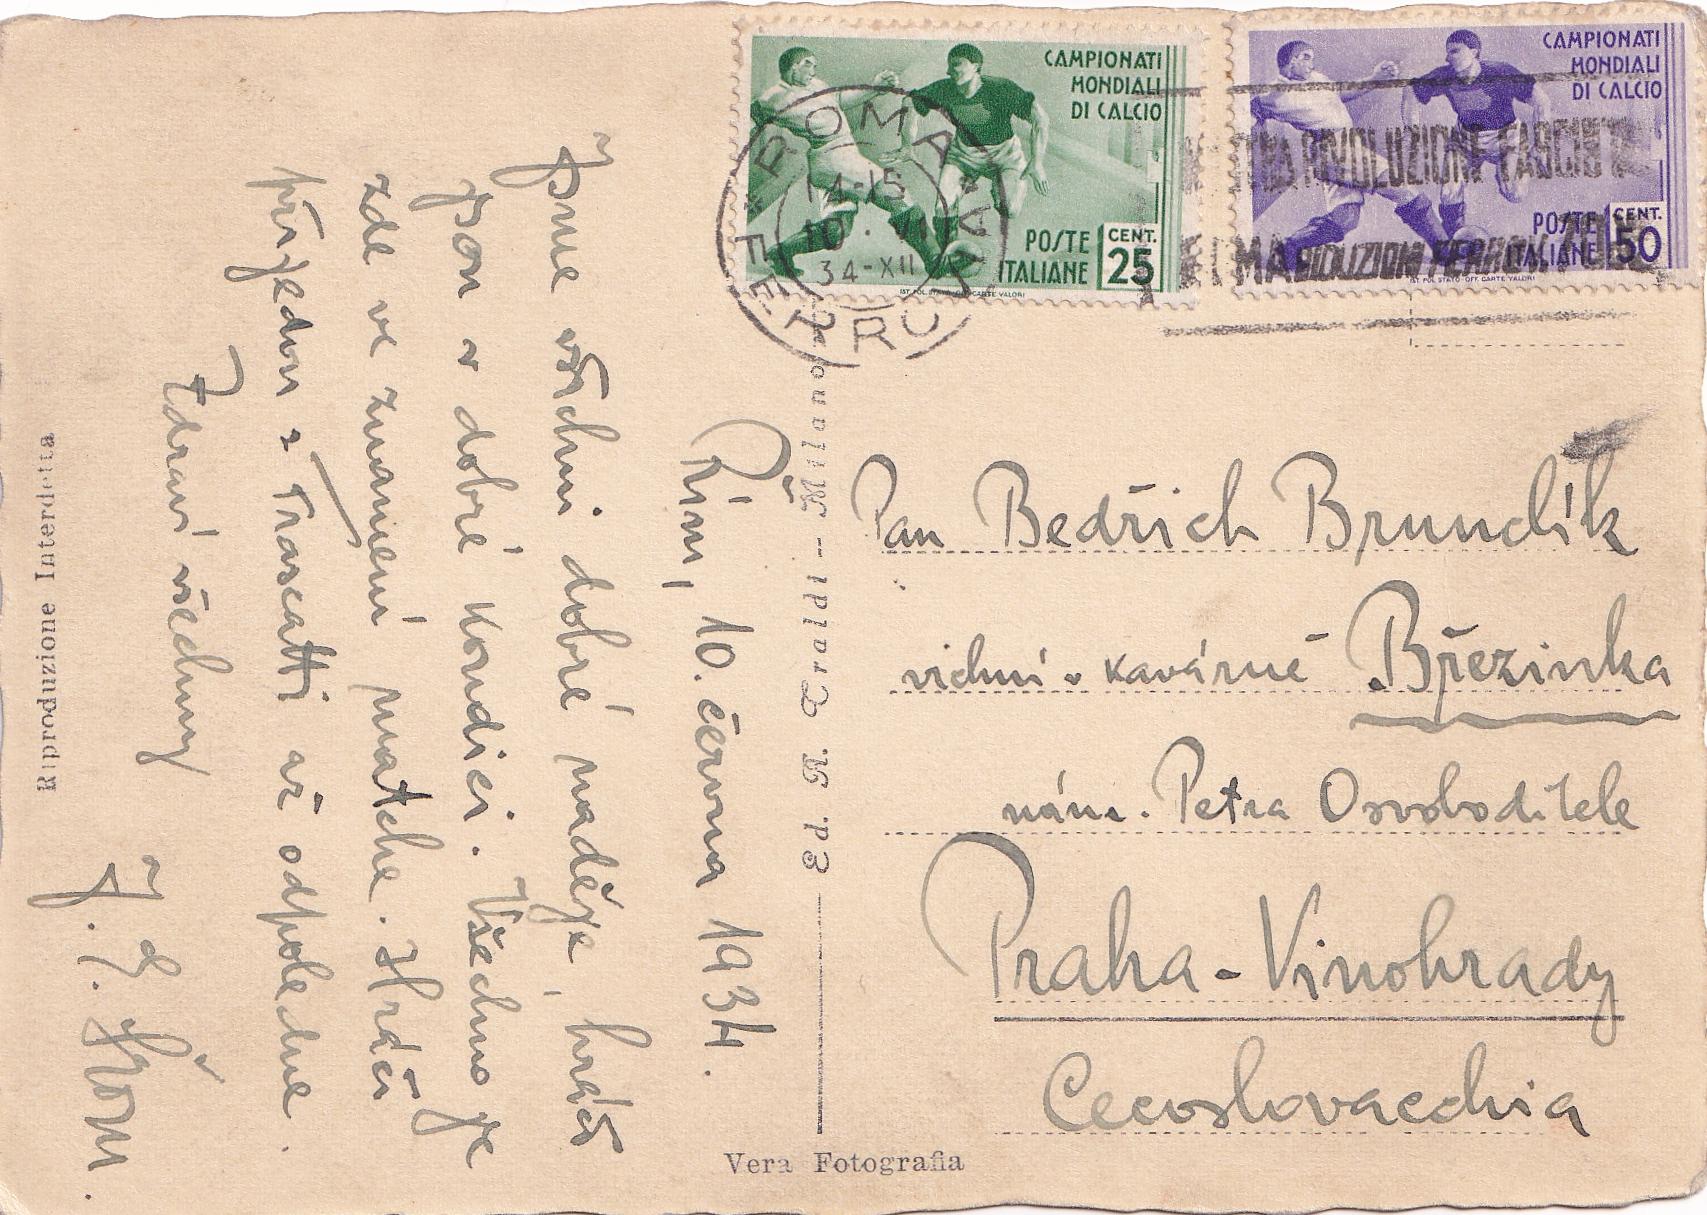 CAMPIONATI
MONDIALI
DI CALCIO
POSTE
ITALIANE
CENT.
25
IST. POL. STATO - OFF. CARTE VALORI
CAMPIONATI
MONDIALI
DI CALCIO
POSTE
ITALIANE
CENT.
50
IST. POL. STATO - OFF. CARTE VALORI
ROMA
FERROVIA
14-15
10·VI
34-XII
RIVOLUZIONE FASCISTA
ROMA RIDUZIONI FERROV. 70%
Řím, 10. června 1934.
Jsme všichni dobré naděje, hráči
jsou v dobré kondici. Všechno je
zde ve znamení matche. Hráči
přijedou z Frascatti až odpoledne.
Zdraví všechny
Riproduzione Interdetta
Ed. A. Traldi -- Milano
Vera Fotografia
Pan Bedřich Brundík
vrchní v kavárně Březinka
nám. Petra Osvoboditele
Praha - Vinohrady
Cecoslovacchia